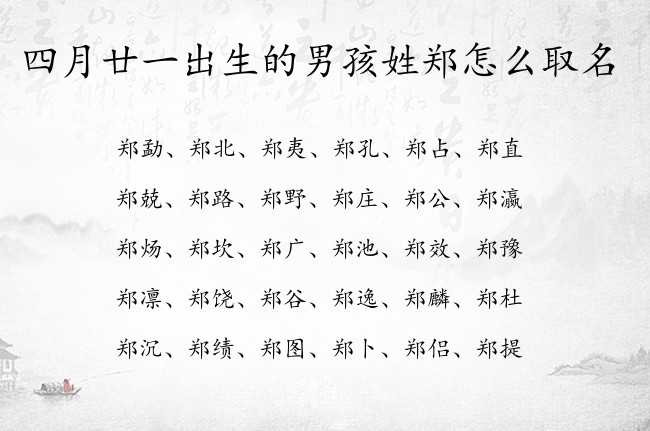 四月廿一出生的男孩姓郑怎么取名
郑勐、郑北、郑夷、郑孔、郑占、郑直
郑兢、郑路、郑野、郑庄、郑公、郑瀛
郑炀、郑坎、郑广、郑池、郑效、郑豫
郑凛、郑饶、郑谷、郑逸、郑麟、郑杜
郑沉、郑绩、郑图、郑卜、郑侣、郑提